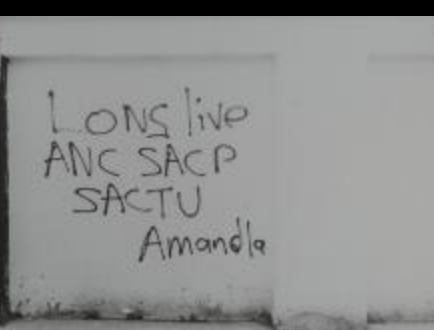 LONG live
ANC SACP
SACTU
Amandla